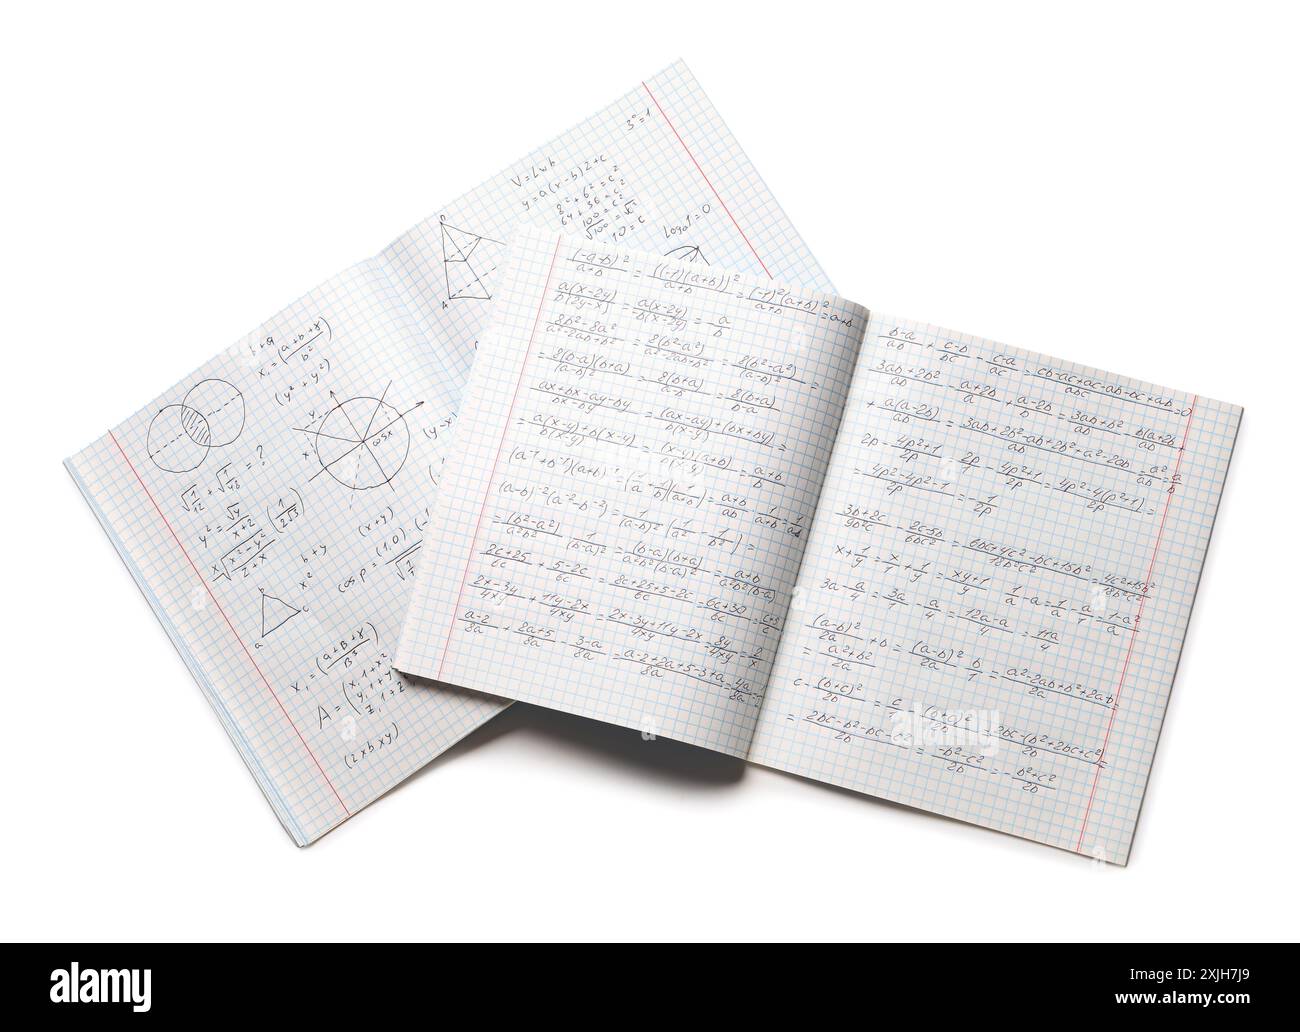 3⁰=1
V=Lwh
y=a(x-b)2+c
8²+6²=c²
64+36=c²
100=c²
√100=√c²
10=c
Logₐ1=0
A
x₁=(a+b+γ)/b²
(y²+y²)
y
x
cosx
√1/12+√1/48=?
y²=√y/(x+2)
(1/2√3)
(x+y)
b+y
x²
b
c
a
(2xbxy)
(-a-b)²/(a+b)=((-1)(a+b))²/(a+b)=(-1)²(a+b)²/(a+b)=a+b
a(x-2y)/b(2y-x)=a(x-2y)/-b(x-2y)=-a/b
(8b²-8a²)/(a²-2ab+b²)=8(b²-a²)/(a²-2ab+b²)=8(b²-a²)/(a-b)²=
=8(b-a)(b+a)/(a-b)²=8(b+a)/(b-a)=8(b+a)/(b-a)
(ax+bx-ay-by)/(bx-by)=((ax-ay)+(bx+by))/b(x-y)=
=(a(x-y)+b(x-y))/b(x-y)=(x-y)(a+b)/b(x-y)=(a+b)/b
(a⁻¹+b⁻¹)(a+b)⁻¹=(1/a+1/b)(1/(a+b))=(a+b)/ab·1/(a+b)=1/ab
(a-b)⁻²(a⁻²-b⁻²)=1/(a-b)²(1/a²-1/b²)=
=(b²-a²)/a²b²·1/(b-a)²=(b-a)(b+a)/a²b²(b-a)²=(a+b)/a²b²(b-a)
(2c+25)/6c+(5-2c)/6c=(2c+25+5-2c)/6c=(6c+30)/6c=(c+5)/c
(2x-3y)/4xy+(11y-2x)/4xy=(2x-3y+11y-2x)/4xy=8y/4xy=2/x
(a-2)/8a+(2a+5)/8a-(3-a)/8a=(a-2+2a+5-3+a)/8a=4a/8a
(b-a)/ab+(c-b)/bc-(c-a)/ac=(cb-ac+ac-ab-bc+ab)/abc=0
(3ab+2b²)/ab-(a+2b)/a+(a-2b)/b=(3ab+b²-b(a+2b)/ab+
+a(a-2b)/ab=(3ab+2b²-ab+2b²+a²-2ab)/ab=a²/ab=a/b
2p-(4p²+1)/2p=2p/1-(4p²+1)/2p=(4p²-4(p²+1))/2p=
=(4p²-4p²-1)/2p=-1/2p
(3b+2c)/9b²c-(2c-5b)/6bc²=(6bc+4c²-bc+15b²)/18b²c²=(4c²+15b²)/18b²c²
x+1/y=x/1+1/y=(xy+1)/y 1/a-a=1/a-a/1=(1-a²)/a
3a-a/4=3a/1-a/4=(12a-a)/4=11a/4
(a-b)²/2a+b=(a-b)²/2a+b/1=(a²-2ab+b²+2ab)/2a=
=(a²+b²)/2a
c-(b+c)²/2b=c/1-(b+a)²/2b=(2bc-(b²+2bc+c²)/2b=
=(2bc-b²-bc-c²)/2b=(-b²-c²)/2b=-(b²+c²)/2b
alamy
alamy
Image ID: 2XJH7J9
www.alamy.com